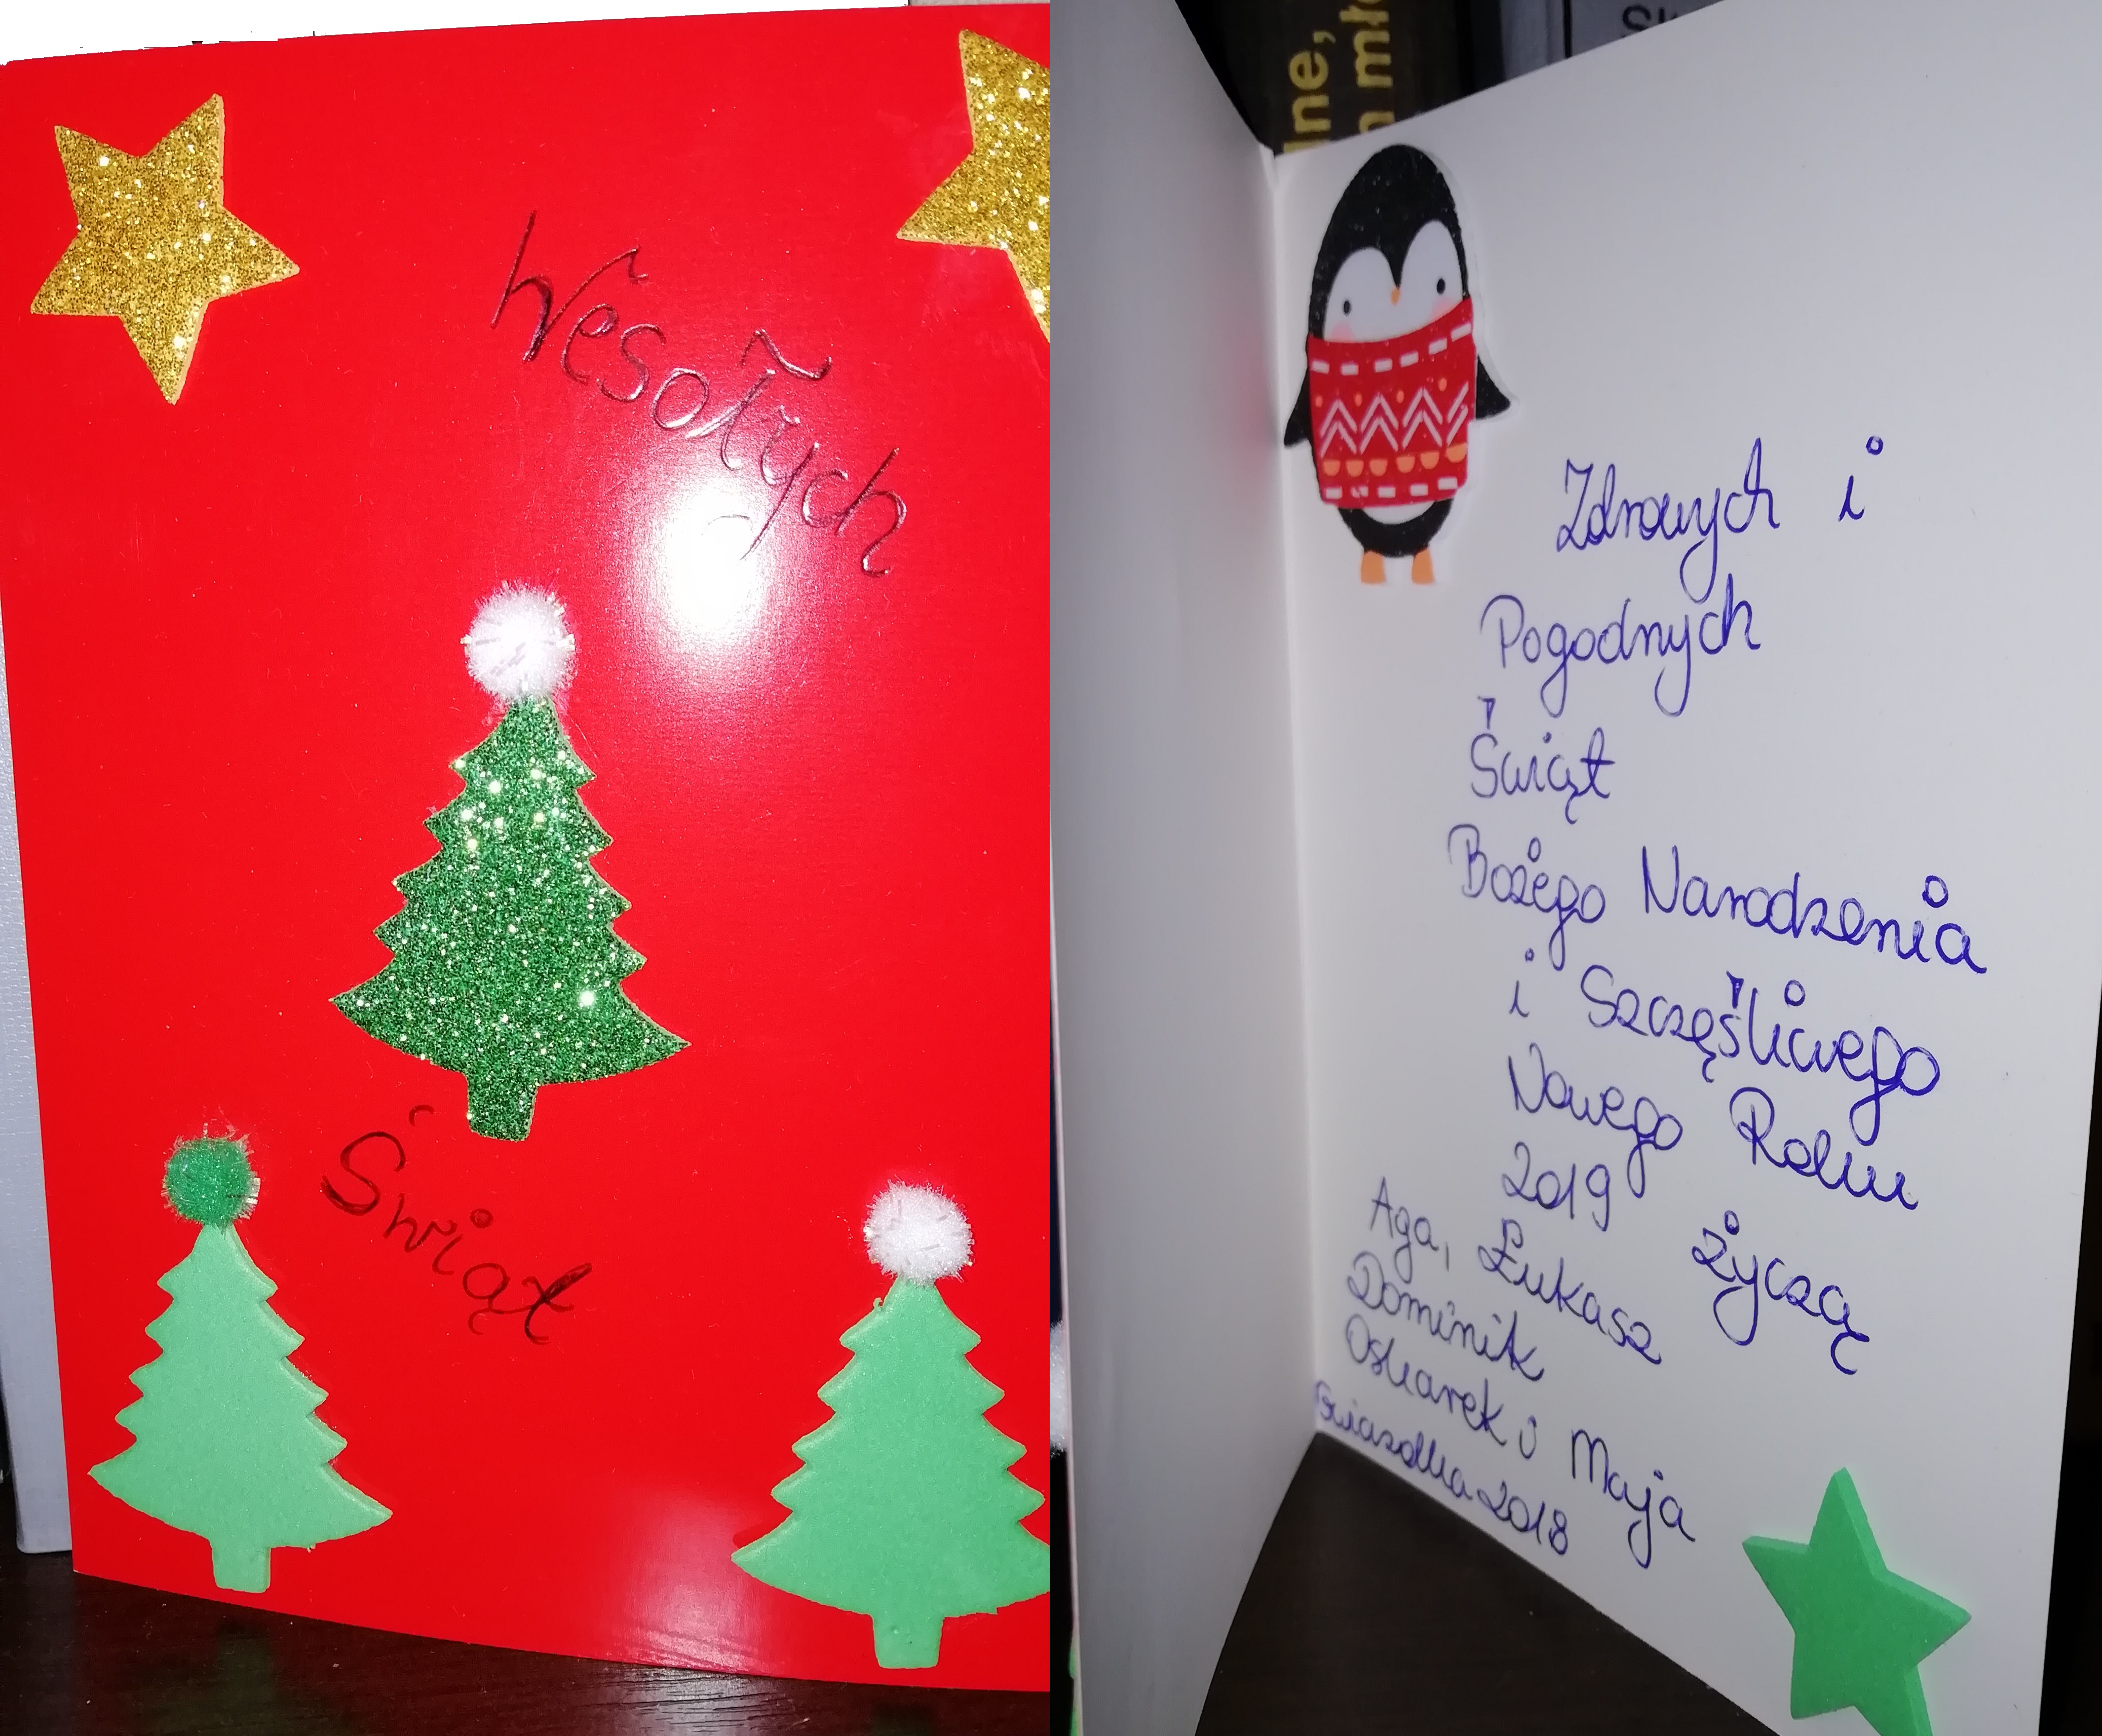 Wesołych
Świąt
ne,
mło
Zdrowych i
Pogodnych
Świąt
Bożego Narodzenia
i Szczęśliwego
Nowego Roku
2019 życzą
Aga, Łukasz
Dominik
Oskarek i Maja
Gwiazdka 2018